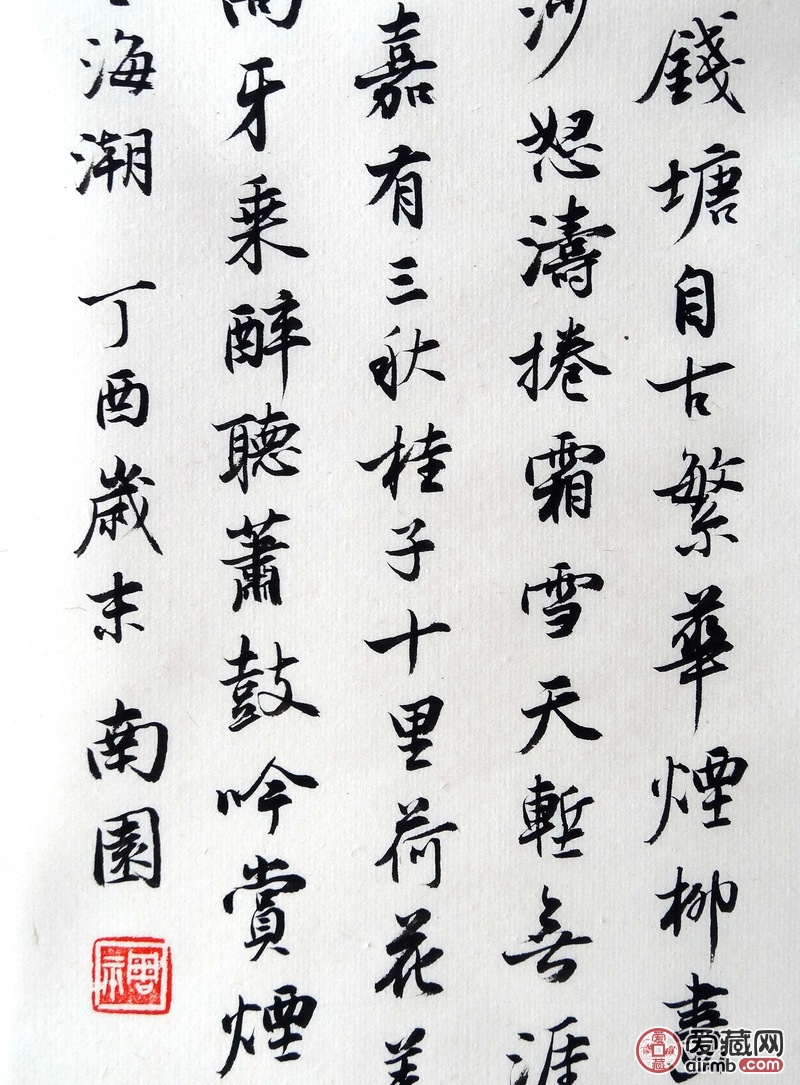 錢塘自古繁華煙柳畫
沙怒濤捲霜雪天塹無涯
嘉有三秋桂子十里荷花羌
高牙乘醉聽蕭鼓吟賞煙
海潮 丁酉歲末 南園
爱藏网
airmb.com